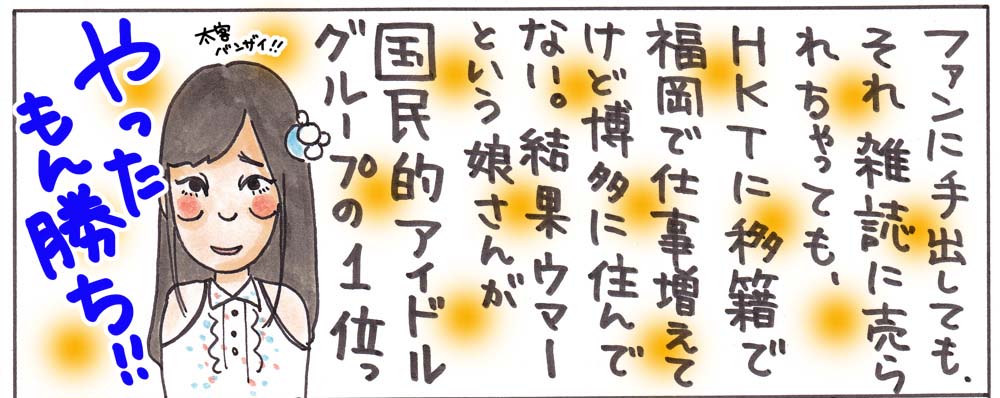 ファンに手出しても、
それ雑誌に売ら
れちゃっても、
HKTに移籍で
福岡で仕事増えて
けど博多に住んで
ない。結果ウマー
という娘さんが
国民的アイドル
グループの1位っ
太客
バンザイ!!
やった
もん勝ち!!